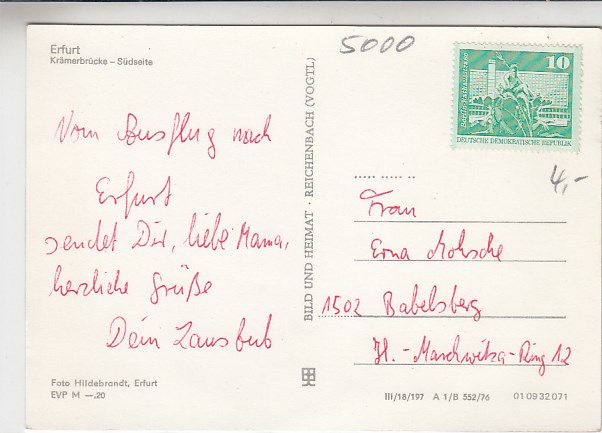 Erfurt
Krämerbrücke – Südseite
5000
Berlin-Rathausstrasse
10
DEUTSCHE DEMOKRATISCHE REPUBLIK
4,-
Vom Ausflug nach
Erfurt
sendet Dir, liebe Mama,
herzliche Grüße
Dein Lausbub
BILD UND HEIMAT · REICHENBACH (VOGTL)
Frau
Erna Mohsche
1502 Babelsberg
Hl.-Marchwitza-Ring 12
Foto Hildebrandt, Erfurt
EVP M —.20
III/18/197 A 1/B 552/76 01 09 32 071